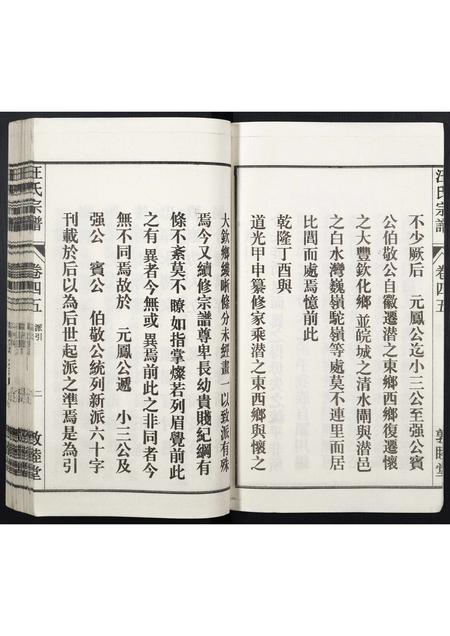 汪氏宗譜
卷四五
敦睦堂
不少厥后 元鳳公迄小三公至强公賓
公伯敬公自徽遷潛之東鄉西鄉復遷懷
之大豐欽化鄉並皖城之清水閘與潛邑
之白水灣巍嶺駝嶺等處莫不連里而居
比閭而處焉憶前此
乾隆丁酉與
道光甲申纂修家乘潛之東西鄉與懷之
大欽鄉縷晰條分未經畫一以致派有殊
焉今又續修宗譜尊卑長幼貴賤紀綱有
條不紊莫不瞭如指掌燦若列眉覺前此
之有異者今無或異焉前此之非同者今
無不同焉故於 元鳳公遞 小三公及
强公 賓公 伯敬公統列新派六十字
刊載於后以為后世起派之準焉是為引
汪氏宗譜
卷四五
派引
一
敦睦堂